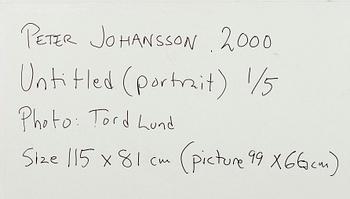 PETER JOHANSSON. 2000
Untitled (portrait) 1/5
Photo: Tord Lund
Size 115 x 81 cm (picture 99 x 66 cm)